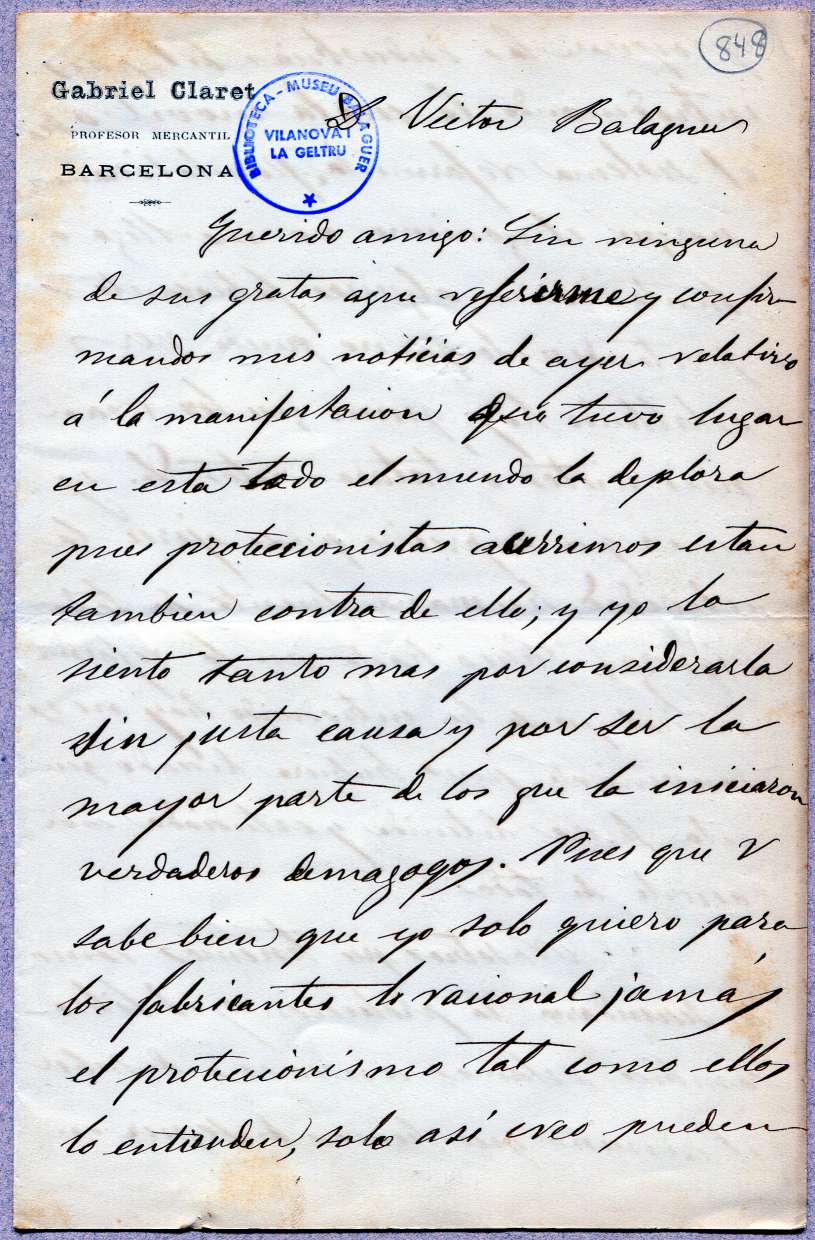 848
Gabriel Claret
PROFESOR MERCANTIL
BARCELONA
BIBLIOTECA - MUSEU BALAGUER
VILANOVA I
LA GELTRU
D Victor Balaguer
Querido amigo: Sin ninguna
de sus gratas aque referirme y confir-
mandos mis noticias de ayer relativas
á la manifestacion que tuvo lugar
en esta todo el mundo la deplora
pues proteccionistas acerrimos estan
tambien contra de ello; y yo la
siento tanto mas por considerarla
sin justa causa y por ser la
mayor parte de los que la iniciaron
verdaderos demagogos. Pues que V
sabe bien que yo solo quiero para
los fabricantes lo racional jamás
el proteccionismo tal como ellos
lo entienden, solo así creo pueden